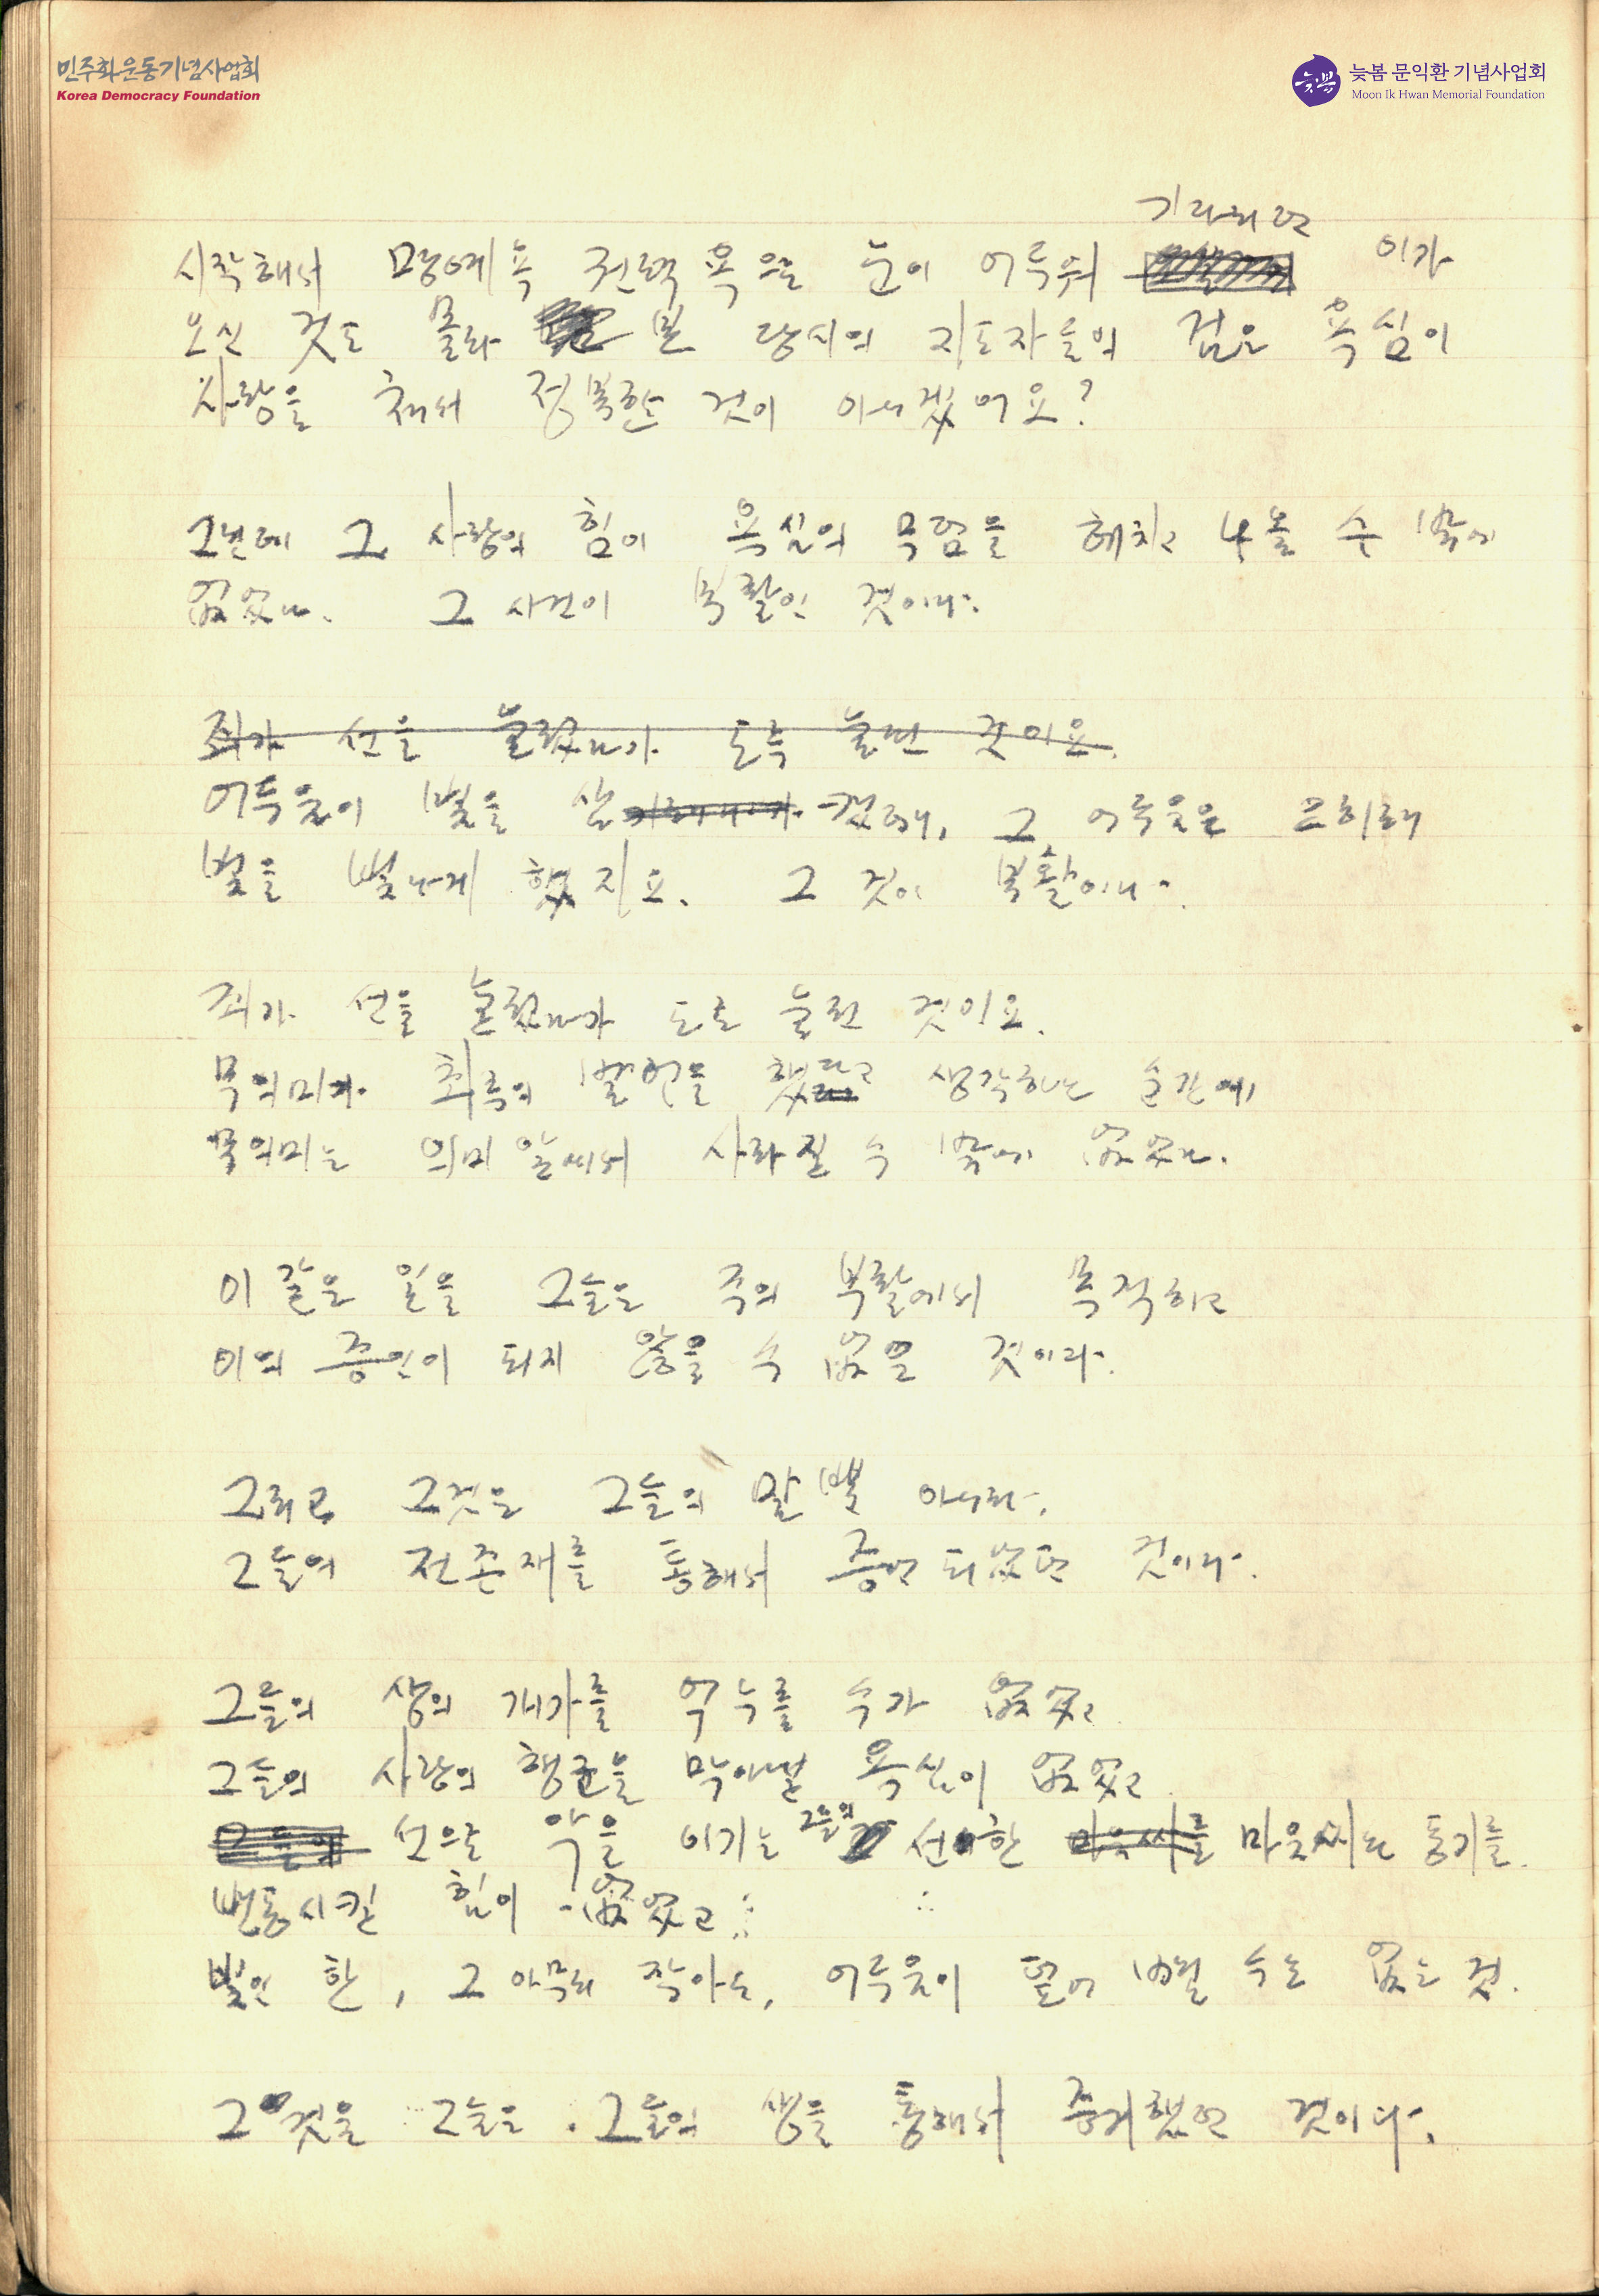 민주화운동기념사업회
Korea Democracy Foundation
늦봄 문익환 기념사업회
Moon Ik Hwan Memorial Foundation
기다리던
시작해서 명예욕 권력욕으로 눈이 어두워 이가
오신 것도 몰라 본 당시의 지도자들의 검은 욕심이
사랑을 쳐서 정복한 것이 아니겠어요?
그런데 그 사랑의 힘이 욕심의 무덤을 헤치고 나올 수 밖에
없었다. 그 사건이 부활인 것이다.
죄가 선을 눌렀다가 도루 눌린 것이요.
어두움이 빛을 삼켰으나, 그 어두움은 오히려
빛을 빛나게 했지요. 그 것이 부활이다.
죄가 선을 눌렀다가 도로 눌린 것이요.
무의미가 최후의 발언을 했다고 생각하는 순간에
무의미는 의미 앞에서 사라질 수 밖에 없었다.
이 같은 일을 그들은 주의 부활에서 목격하고
이의 증인이 되지 않을 수 없은 것이다.
그리고 그것은 그들의 말 뿐 아니라,
그들의 전존재를 통해서 증언되었던 것이다.
그들의 생의 개가를 억누를 수가 없었고
그들의 사랑의 행군을 막아낼 욕심이 없었고
선으로 악을 이기는 그들의 선한 마음씨의 동기를
변동시킬 힘이 없었고
빛인 한, 그 아무리 작아도, 어두움이 덮어 버릴 수는 없는 것.
그것을 그들은 그들의 생을 통해서 증거했던 것이다.